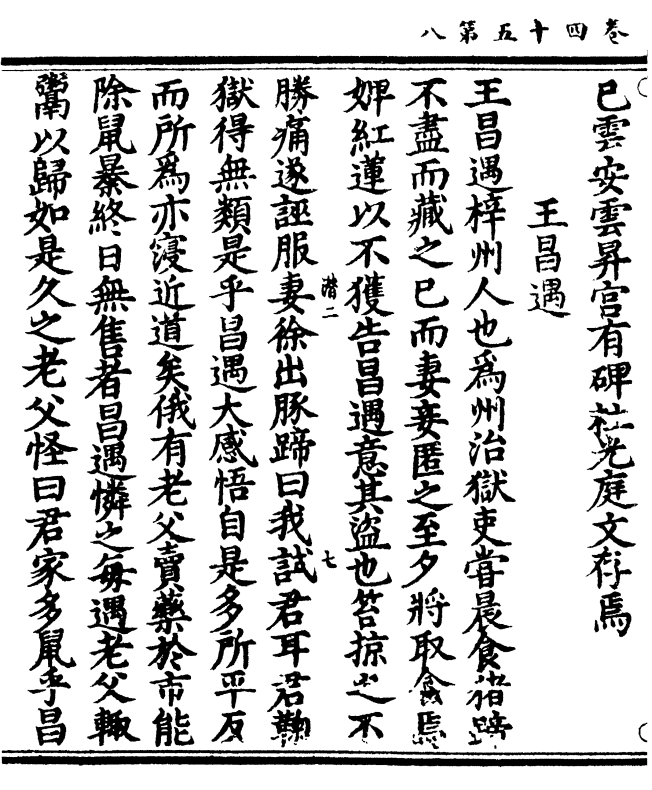 卷四十五第八
已雲安雲昇宮有碑杜光庭文存焉
王昌遇
王昌遇梓州人也爲州治獄吏嘗晨食猪蹄
不盡而藏之已而妻妾匿之至夕將取食焉
婢紅蓮以不獲告昌遇意其盜也笞掠之不
勝痛遂誣服妻徐出豚蹄曰我試君耳君鞠
潜二
七
獄得無類是乎昌遇大感悟自是多所平反
而所爲亦寖近道矣俄有老父賣藥於市能
除鼠㬥終日無售者昌遇憐之每遇老父輙
鬻以歸如是久之老父怪曰君家多鼠乎昌